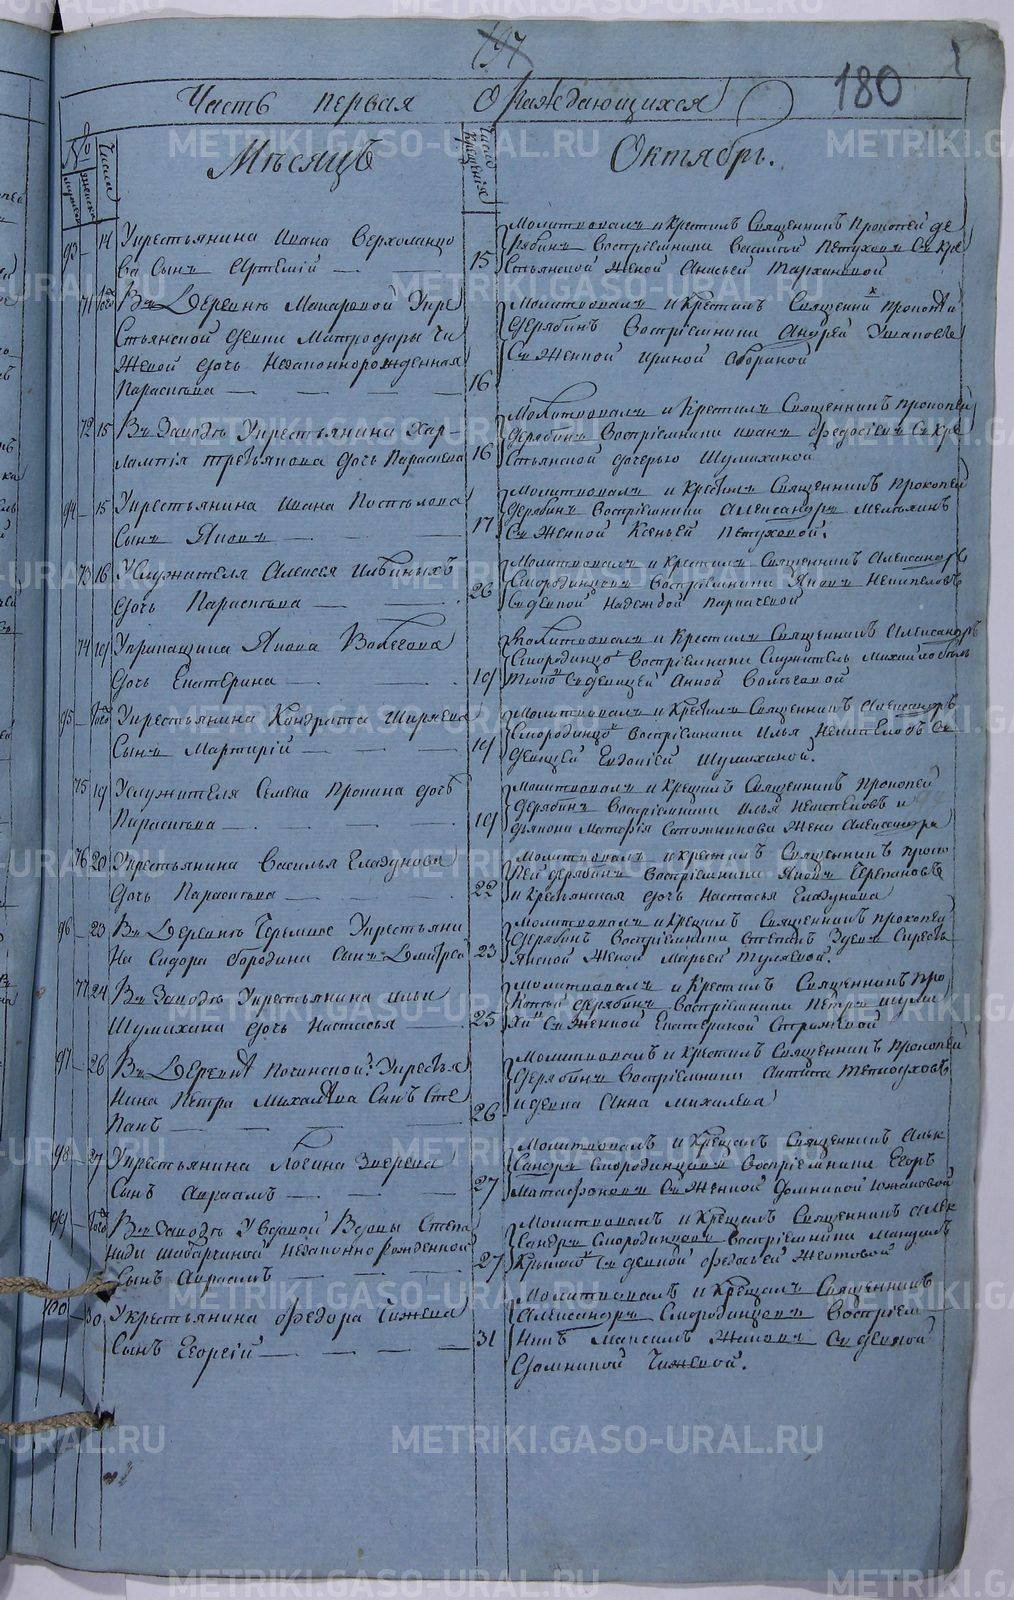 197
180
Часть первая о раждающихся
№
мужеск
женска
Числа
Мѣсяцъ
Число крещенія
Октябрь.
93 — 14 У крестьянина Ивана Верхоланцо
ва Сынъ Артемій
15
Молитвовалъ и Крестилъ Священникъ Прокопей де
рябинъ Воспріемники Василей Петуховъ Съ кре
стьянской Женой Анисьей Тархановой
71 того Въ Деревнѣ Макаровой У кре
стьянской девки Матродоры Чи
жевой дочь Незаконнорожденная
Параскева
16
Молитвовалъ и Крестилъ Священник Прокопей
Дерябинъ Воспріемники Андрей Ушаковъ
Съ Женкой Ириной
72 15 Въ Заводѣ У крестьянина Хар
лампія Третьякова дочь Параскева
16
Молитвовалъ и Крестилъ Священникъ Прокопей
Дерябинъ Воспріемники Иванъ Федосѣевъ Съ кре
стьянской дочерью Шумихиной
94 — 15 У крестьянина Ивана Постылова
Сынъ Яковъ
17
Молитвовалъ и Крестилъ Священникъ Прокопей
Дерябинъ Воспріемники Александръ
Съ Женкой Ксеньей Петуховой.
73 16 У Служителя Алексея Ильиныхъ
дочь Параскева
26
Молитвовалъ и Крестилъ Священникъ Александръ
Смородинцовъ Воспріемники Яковъ Нешпеловъ
Съ девкой Надеждой
74 19 У приказщика Якова Волегова
дочь Екатерина
19
Молитвовалъ и Крестилъ Священникъ Александръ
Смородинцо Воспріемники Служитель Михайло
Съ девицей Анной Волеговой
95 — того У крестьянина Кондрата Ширяева
Сынъ Мартирій
19
Молитвовалъ и Крестилъ Священникъ Александръ
Смородинцо Воспріемники Илья Нешпеловъ Съ
девицей Евдокіей Шумихиной.
75 19 У служителя Семена Пронина дочь
Параскева
19
Молитвовалъ и Крещалъ Священникъ Прокопей
Дерябинъ Воспріемники Илья Нешпеловъ и
дьякона Матфія Сапожникова Жена Александра
76 20 У крестьянина Василья Гладунова
дочь Параскева
22
Молитвовалъ и крестилъ Священникъ Проко
пей дерябинъ Воспріемники Яковъ Черепановъ
и Крестьянская дочь Настасья Гладунова
96 — 23 Въ Деревнѣ Черемисе У крестьяни
на Сидора Бородина Сынъ Дмитрей
23
Молитвовалъ и Крещилъ Священникъ Прокопей
Дерябинъ Воспріемники Степанъ Зуевъ Съ кресть
янской Женой Марьей Туляевой.
77 24 Въ Заводѣ У крестьянина Ильи
Шумихина дочь Настасья
25
Молитвовалъ и Крестилъ Священникъ Про
копей дерябинъ Воспріемники Петръ Шуми
хи Съ Женкой Екатериной
97 — 26 Въ Деревнѣ Починской У крестья
нина Петра Михалева Сынъ Сте
панъ
26
Молитвовалъ и Крестилъ Священникъ Прокопей
Дерябинъ Воспріемники Антипа Теплоуховъ
и девка Анна Михалева
98 — 27 У крестьянина Логина Зверева
Сынъ Авраамъ
27
Молитвовалъ и Крещалъ Священникъ Алек
сандръ Смородинцовъ Воспріемники Егоръ
Матафоновъ Съ Женкой Домникой Южаковой
99 — того Въ Заводѣ У бедной Вдовы Степа
ниды Шабарчиной Незаконно рожденной
Сынъ Авраамъ
27
Молитвовалъ и Крещалъ Священникъ Алек
сандръ Смородинцовъ Воспріемники Максимъ
съ девкой Федосьей Желтовой
100 — 30 У крестьянина Федора Чижева
Сынъ Георгій
31
Молитвовалъ и Крещалъ Священникъ
Александръ Смородинцовъ Воспріем
никъ Максимъ Съ девкой
Домникой Чижевой.
METRIKI.GASO-URAL.RU